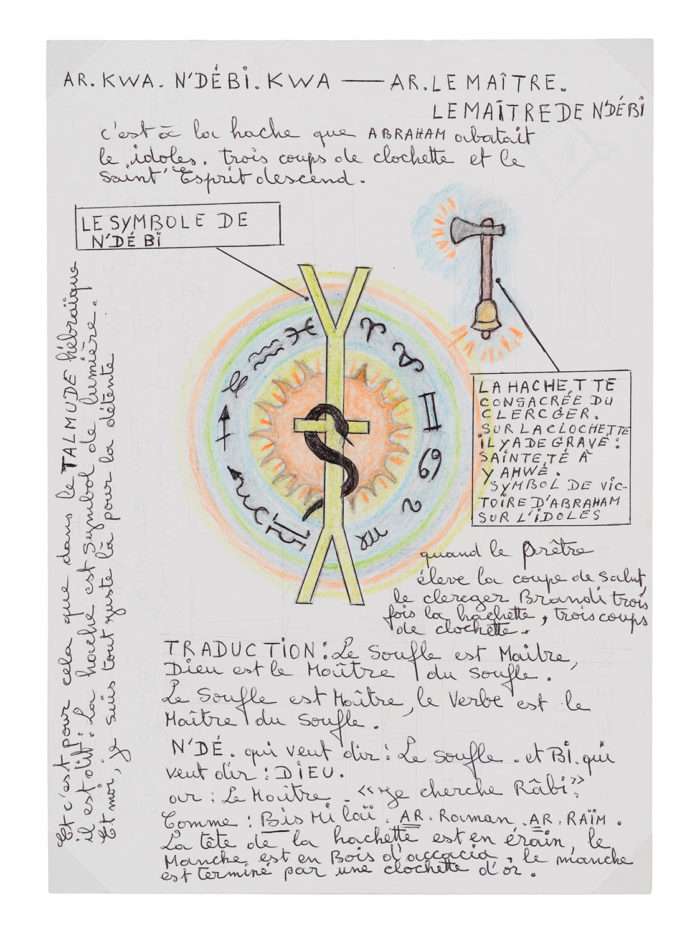 AR. KWA. N'DÉBI. KWA — AR. LE MAÎTRE.
LE MAÎTRE DE N'DÉBI
c'est à la hache que ABRAHAM abatait
le idoles. trois coups de clochette et le
Saint' Esprit descend.
LE SYMBOLE DE
N'DÉ BI
LA HACHETTE
CONSACRÉE DU
CLERCGER.
SUR LA CLOCHETTE
IL Y A DE GRAVÉ :
SAINTETÉ À
YAHWÉ.
SYMBOL DE VIC-
TOIRE D'ABRAHAM
SUR L'IDOLES
Et c'est pour cela que dans le TALMUDE hébraïque
il est dit : La hache est Symbol de lumière.
Et moi, je suis tout juste là pour la détente
quand le prêtre
éleve la coupe de Salut,
le clercger Brandi trois
fois la hachette, trois coups
de clochette.
TRADUCTION : Le Soufle est Maitre,
Dieu est le Maître du Soufle.
Le Soufle est Maître, le Verbe est le
Maître du Soufle.
N'DÉ. qui veut dir : Le soufle. et BI. qui
veut dir : DIEU.
our : Le Maître. «Je cherche Râbi»
Comme : Bis Mi laï. AR. Raman. AR. RAÏM.
La tête de la hachette est en érain, le
Manche est en Bois d'accacia, le manche
est terminé par une clochette d'or.